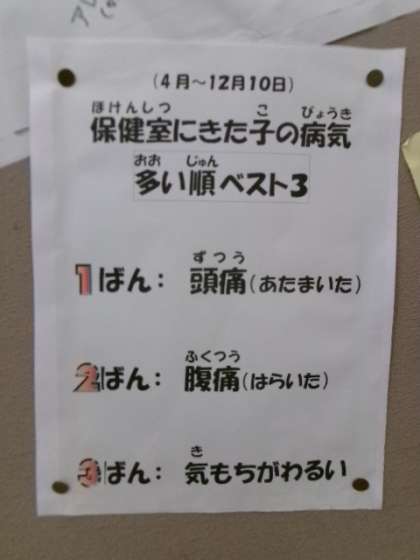 (4月～12月10日)
ほけんしつ こ びょうき
保健室にきた子の病気
おお じゅん
多い順ベスト3
ずつう
1ばん: 頭痛(あたまいた)
ふくつう
2ばん: 腹痛(はらいた)
き
3ばん: 気もちがわるい